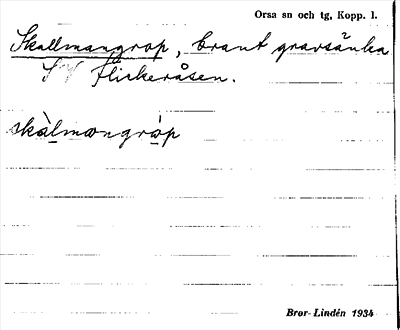 Orsa sn och tg, Kopp. l.
Skallmangrop, brant gravsänka
SV Flickeråsen.
skàlmangròp
Bror Lindén 1934